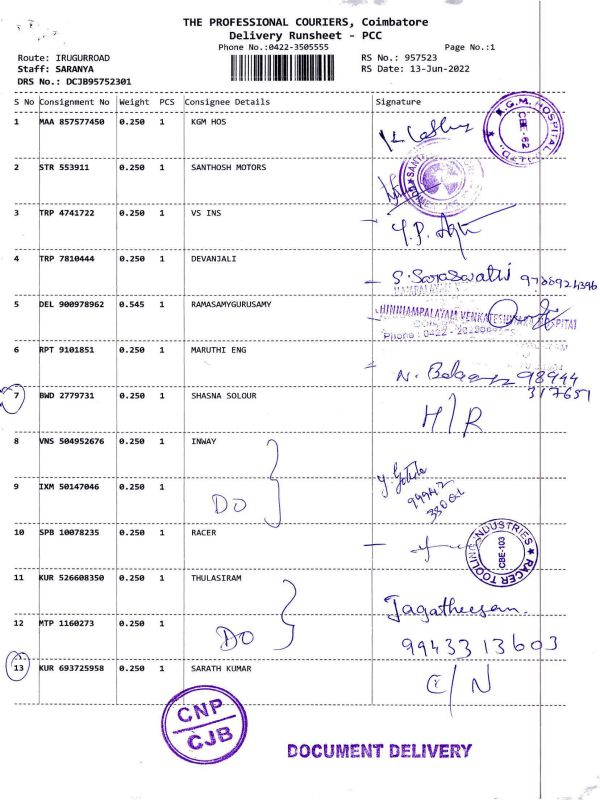 THE PROFESSIONAL COURIERS, Coimbatore
Delivery Runsheet - PCC
Phone No.:0422-3505555
Page No.:1
Route: IRUGURROAD
RS No.: 957523
Staff: SARANYA
RS Date: 13-Jun-2022
DRS No.: DCJB95752301
S No Consignment No Weight PCS Consignee Details Signature
1 MAA 857577450 0.250 1 KGM HOS
K.G.M. HOSPITAL CBE-62
2 STR 553911 0.250 1 SANTHOSH MOTORS
3 TRP 4741722 0.250 1 VS INS
4 TRP 7810444 0.250 1 DEVANJALI
S. Saraswathi
5 DEL 900978962 0.545 1 RAMASAMYGURUSAMY
Phone: 0422 -
6 RPT 9101851 0.250 1 MARUTHI ENG
N. 98944
317651
7 BWD 2779731 0.250 1 SHASNA SOLOUR
H/R
8 VNS 504952676 0.250 1 INWAY
9 IXM 50147046 0.250 1
DO
10 SPB 10078235 0.250 1 RACER
RACER TOOLING INDUSTRIES CBE-103
11 KUR 526608350 0.250 1 THULASIRAM
Jagatheesan.
12 MTP 1160273 0.250 1
DO
9943313603
13 KUR 693725958 0.250 1 SARATH KUMAR
C/N
CNP
CJB
DOCUMENT DELIVERY